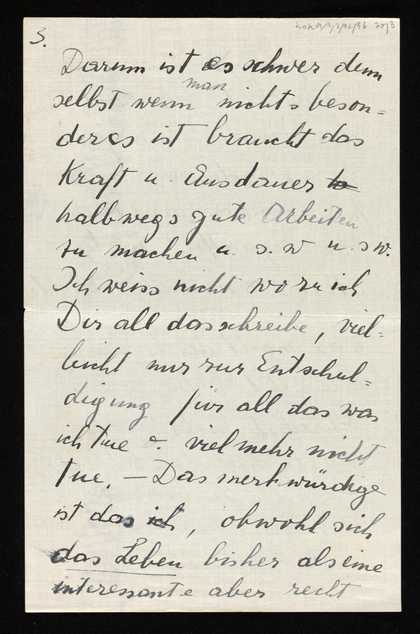 3.
Darum ist es schwer denn
man
selbst wenn nichts beson=
deres ist braucht das
Kraft u. Ausdauer
halbwegs gute Arbeiten
zu machen u. s. w u. s w.
Ich weiss nicht wozu ich
Dir all das schreibe, viel=
leicht nur zur Entschul=
digung für all das was
ich tue & vielmehr nicht
tue. – Das merkwürdige
ist dass ich, obwohl sich
das Leben bisher als eine
interessante aber recht